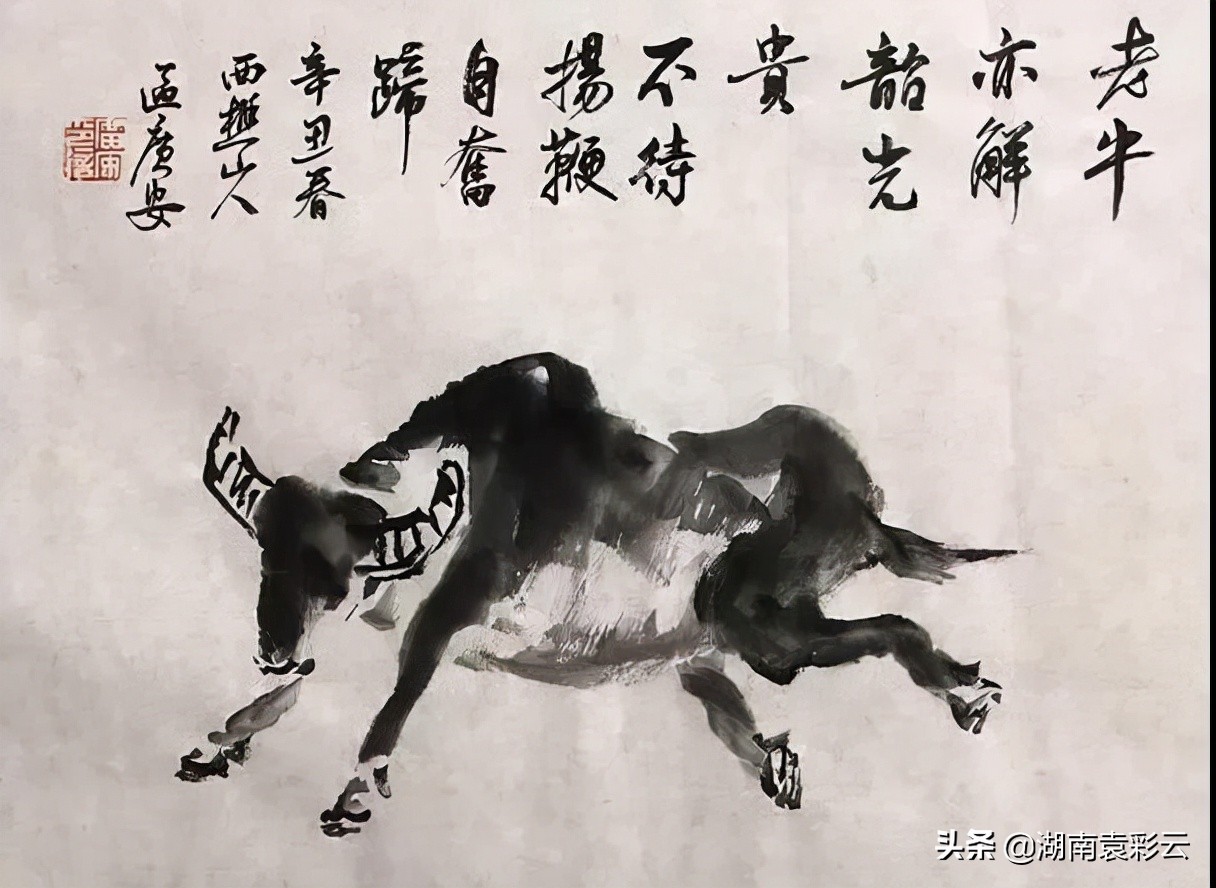 老牛
亦解
韶光
貴
不待
揚鞭
自奮
蹄
辛丑春
西樵山人
孟广安
头条 @湖南袁彩云